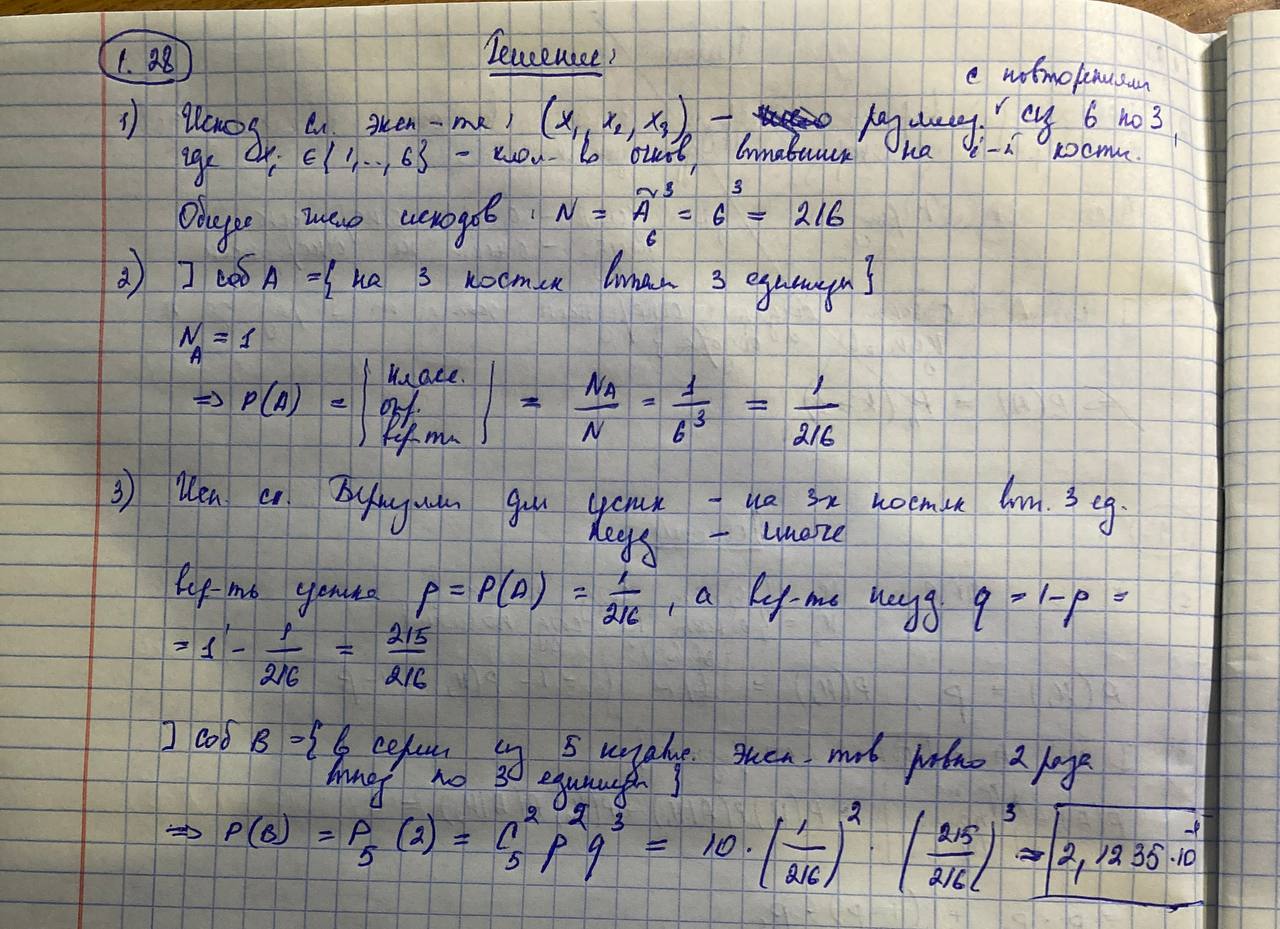 1.28 Решение:
с повторениями
1) Исход сл. эксп-та: (x₁, x₂, x₃) – размещ. из 6 по 3,
где xᵢ ∈ {1,..,6} – кол-во очков, выпавших на i-й кости.
Общее число исходов: N = Ã₆³ = 6³ = 216
2) ] соб A = { на 3 костях выпали 3 единицы }
N_A = 1
⇒ P(A) = | класс. опр. вер-ти | = N_A/N = 1/6³ = 1/216
3) Исп. сх. Бернулли для успех – на 3х костях вып. 3 ед.
неуд – иначе
вер-ть успеха p = P(A) = 1/216, а вер-ть неуд. q = 1-p =
= 1 - 1/216 = 215/216
] соб B = { в серии из 5 незав. эксп-тов ровно 2 раза
выпад по 3 единицы }
⇒ P(B) = P₅(2) = C₅² p² q³ = 10 · (1/216)² · (215/216)³ = 2,1235·10⁻⁴